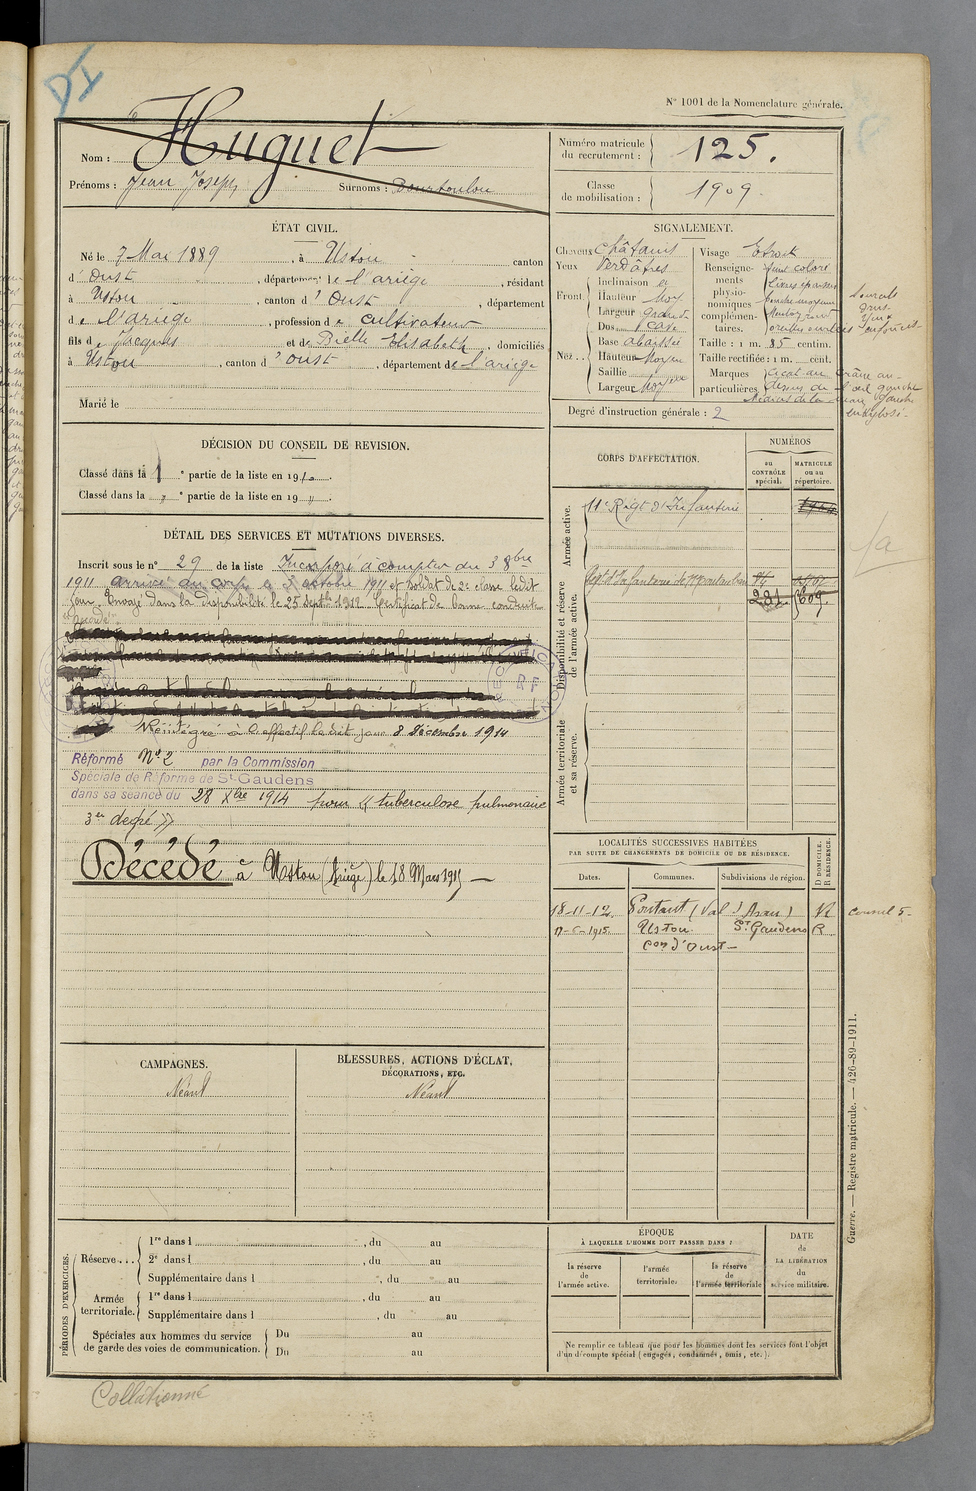 N° 1001 de la Nomenclature générale.
Nom : Huguet
Prénoms : Jean Joseph Surnoms : Dourtoulou
Numéro matricule du recrutement : 125.
Classe de mobilisation : 1909
ÉTAT CIVIL.
Né le 7 Mai 1889, à Ustou canton
d'Oust, département de l'ariège, résidant
à Ustou, canton d'Oust, département
de l'ariège, profession de cultivateur
fils de Jacques et de Bielle Elisabeth, domiciliés
à Ustou, canton d'oust, département de l'ariège
Marié le
SIGNALEMENT.
Cheveux Châtains
Yeux Verdâtres
Front. Inclinaison
Hauteur Moy
Largeur grande
Nez. Dos cave
Base abaissée
Hauteur Moyen
Saillie
Largeur Moyenne
Visage Etroit
Renseignements physionomiques complémentaires.
teint coloré
lèvres épaisses
bouche moyenne
Menton rond
Taille : 1 m. 85 centim.
Taille rectifiée : 1 m. cent.
Marques particulières cicat. au crâne au-
dessus de l'œil gauche
Médius de la main gauche
ankylosé.
Degré d'instruction générale : 2
DÉCISION DU CONSEIL DE REVISION.
Classé dans la 1e partie de la liste en 1910.
Classé dans la " e partie de la liste en 19 ".
DÉTAIL DES SERVICES ET MUTATIONS DIVERSES.
Inscrit sous le n° 29 de la liste Incorporé à compter du 3 8bre
1911 arrivé au corps le 3 octobre 1911 et soldat de 2e classe ledit
jour. Envoyé dans la disponibilité le 25 septbre 1912. Certificat de bonne conduite
accordé.
Réintégré à l'effectif le dit jour 8 Décembre 1914
Réformé N°2 par la Commission
Spéciale de Réforme de St-Gaudens
dans sa séance du 28 Xbre 1914 pour « tuberculose pulmonaire
3e degré »
Décédé à Ustou (Ariège) le 18 Mars 1915 —
CORPS D'AFFECTATION.
NUMÉROS
au CONTRÔLE spécial.
MATRICULE ou au répertoire.
Armée active.
11e Régt d'Infanterie
Disponibilité et réserve de l'armée active.
Regt d'Infanterie de Montauban
281 609
Armée territoriale et sa réserve.
LOCALITÉS SUCCESSIVES HABITÉES
PAR SUITE DE CHANGEMENTS DE DOMICILE OU DE RÉSIDENCE.
Dates. Communes. Subdivisions de région. D DOMICILE. R RÉSIDENCE.
18-11-12. (Val d'Aran) R Consul
1915. Ustou St Gaudens R
Con d'Oust
CAMPAGNES.
Néant
BLESSURES, ACTIONS D'ÉCLAT,
DÉCORATIONS, ETC.
Néant
PÉRIODES D'EXERCICES.
Réserve... 1re dans l , du au
2e dans l , du au
Supplémentaire dans l , du au
Armée territoriale. 1re dans l , du au
Supplémentaire dans l , du au
Spéciales aux hommes du service
de garde des voies de communication. Du au
Du au
ÉPOQUE
À LAQUELLE L'HOMME DOIT PASSER DANS :
la réserve de l'armée active.
l'armée territoriale.
la réserve de l'armée territoriale
DATE de LA LIBÉRATION du service militaire.
Ne remplir ce tableau que pour les hommes dont les services font l'objet
d'un décompte spécial (engagés, condamnés, omis, etc.).
Guerre. — Registre matricule. — 426-89-1911.
Collationné